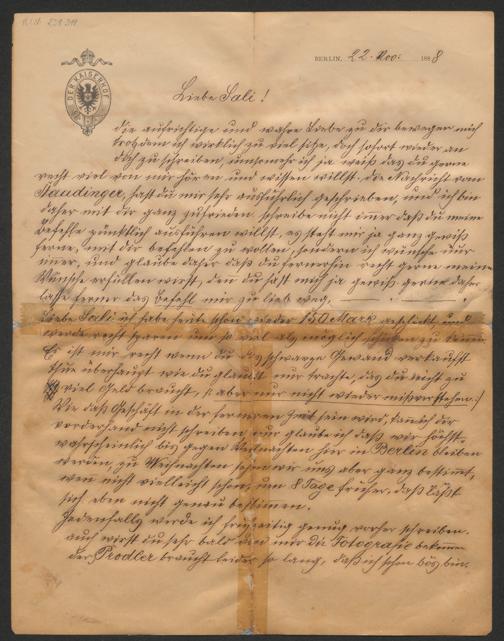 DER KAISERHOF
BERLIN, 22. Nov: 1888
Liebe Sali!
die aufrichtige und wahre Liebe zu dir bewegen mich
trotzdem ich wirklich zu viel sitze, doch sofort wieder an
dich zu schreiben, umsomehr ich ja weiß das du gerne
recht viel von mir hören und wissen willst. die Nachricht vom
Staudinger, hast du mir sehr ausführlich geschrieben, und ich bin
daher mit dir ganz zufrieden schreibe nicht immer daß du meine
Befehle pünktlich ausführen willst, es fest mir ja ganz gewiß
ferne, mit dir befehlen zu wollen, sondern ich wünsche nur
immer, und glaube daher daß du fernerhin recht gerne meine
Wünsche erfüllen wirst, den du hast mich ja gewiß gerne daher
lasse ferner das Befehl mir zu lieb weg.
Liebe Sali ich habe heute schon wieder 150 Mark geschickt, und
werde recht sparen um so viel als möglich schicken zu können
Es ist mir recht wenn du das schwarze Gewand verkaufst
thue überhaupt wie du glaubst nur trachte, das du nicht zu
viel Geld brauchst, (: aber nur nicht wieder misverstehen:)
Wie daß Geschäft in der ferneren Zeit sein wird, kann ich dir
vorderhand nicht schreiben, nur glaube ich daß wir höchst-
wahrscheinlich bis gegen Weihnachten hier in Berlin bleiben
werden, zu Weihnachten sehen wir uns aber ganz bestimmt,
wen nicht vielleicht schon um 8 Tage früher. daß läßt
sich eben nicht genau bestimen.
Jedenfalls werde ich frühzeitig genug vorher schreiben.
auch wirst du sehr bald von mir die Fotografie bekommen
der Prodler braucht leider so lang, daß ich schon bös bin.